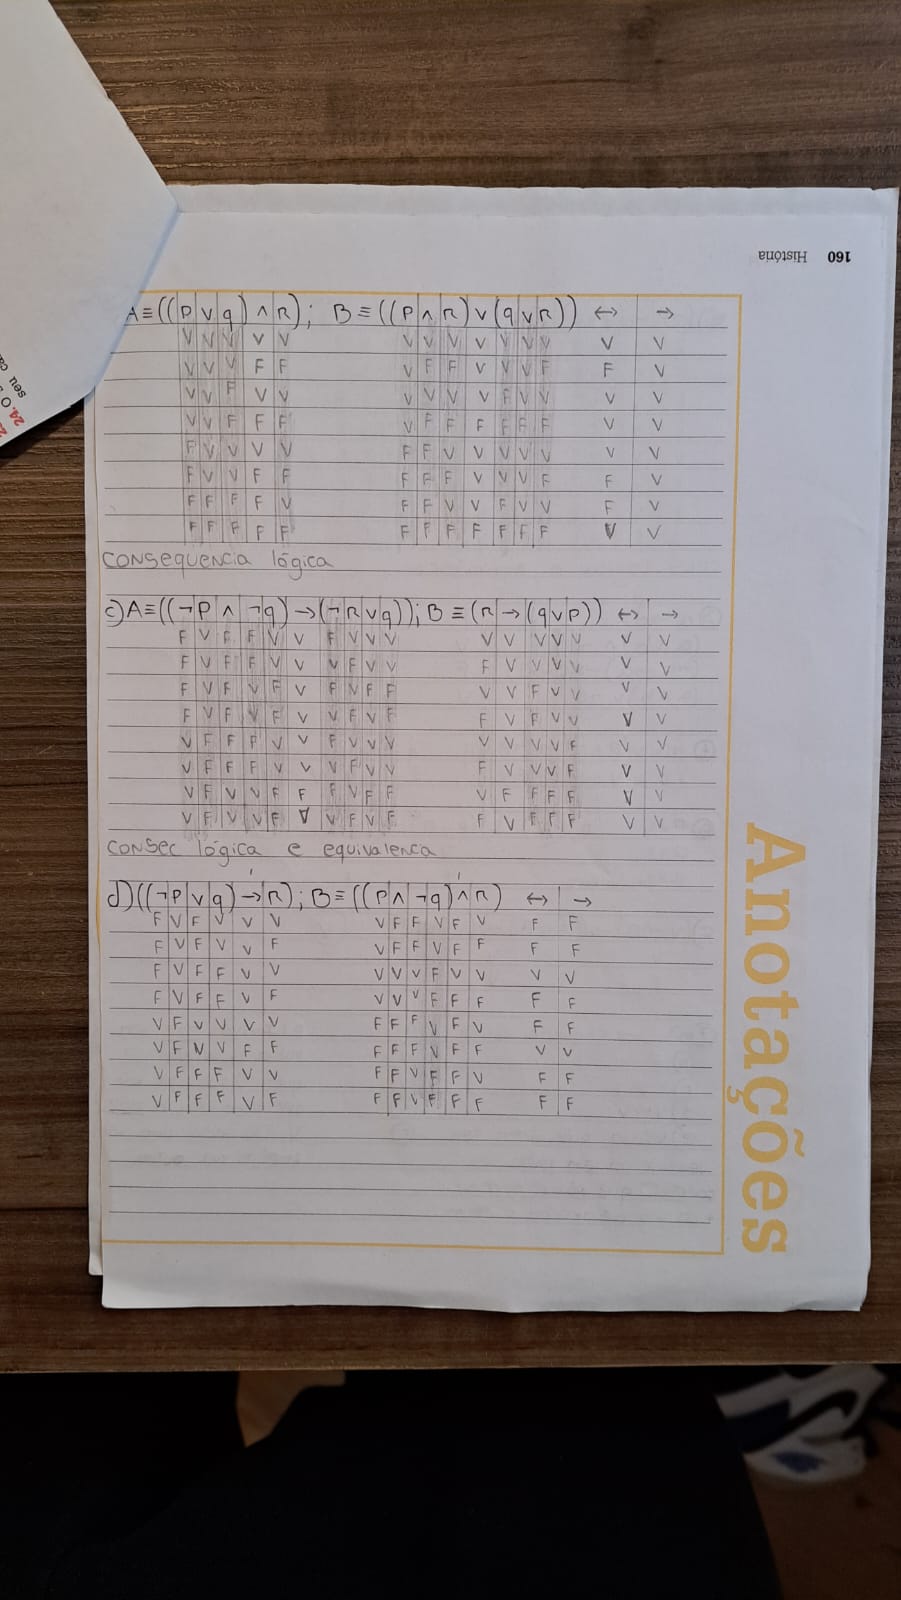 160 História
24. O
seu
A≡((p∨q)∧R); B≡((p∧R)∨(q∨R)) ↔ →
V V V V V V V V V V V V V V
V V V F F V F F V V V F F V
V V F V V V V V V F V V V V
V V F F F V F F F F F F V V
F V V V V F F V V V V V V V
F V V F F F F F V V V F F V
F F F F V F F V V F V V F V
F F F F F F F F F F F F V V
CONSEQUENCIA lógica
c)A≡((¬p∧¬q)→(¬R∨q)); B≡(R→(q∨p)) ↔ →
F V F F V V F V V V V V V V V V V
F V F F V V V F V V F V V V V V V
F V F V F V F V F F V V F V V V V
F V F V F V V F V F F V F V V V V
V F F F V V F V V V V V V V F V V
V F F F V V V F V V F V V V F V V
V F V V F F F V F F V F F F F V V
V F V V F V V F V F F V F F F V V
CONSEC lógica e equivalenca
d)((¬p∨q)→R); B≡((p∧¬q)∧R) ↔ →
F V F V V V V F F V F V F F
F V F V V F V F F V F F F F
F V F F V V V V V F V V V V
F V F F V F V V V F F F F F
V F V V V V F F F V F V F F
V F V V F F F F F V F F V V
V F F F V V F F V F F V F F
V F F F V F F F V F F F F F
Anotações